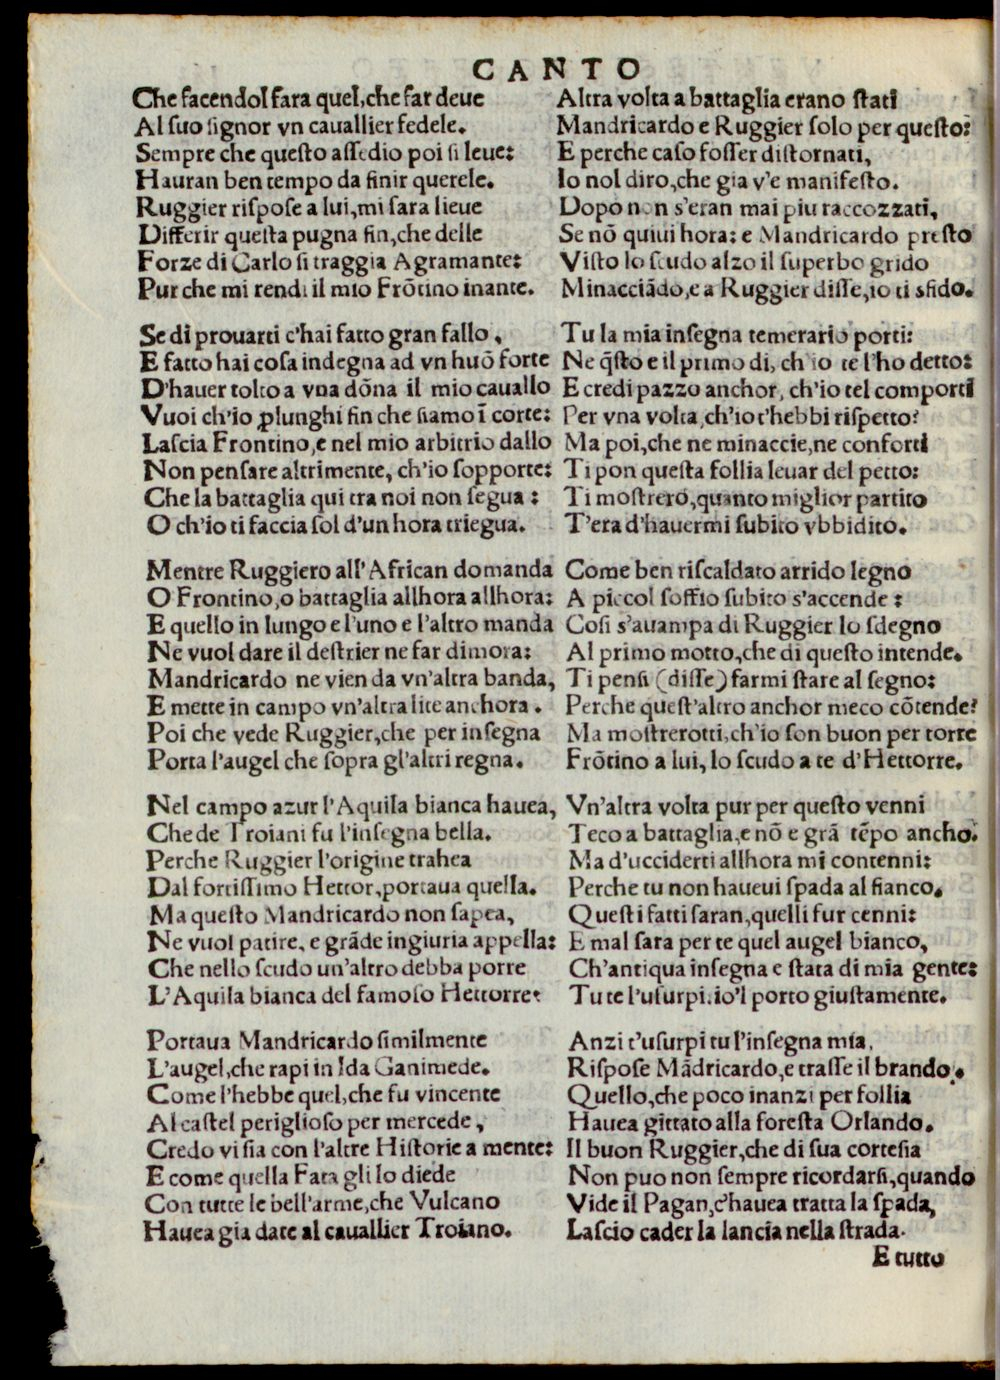 CANTO
Che facendol fara quel,che far deue
Al suo signor vn cauallier fedele.
Sempre che questo assedio poi si leue:
Hauran ben tempo da finir querele.
Ruggier rispose a lui,mi sara lieue
Differir questa pugna fin,che delle
Forze di Carlo si traggia Agramante:
Pur che mi rendi il mio Frõtino inante.
Se di prouarti c'hai fatto gran fallo,
E fatto hai cosa indegna ad vn huõ forte
D'hauer tolto a vna dõna il mio cauallo
Vuoi ch'io ꝓlunghi fin che siamo ĩ corte:
Lascia Frontino,e nel mio arbitrio dallo
Non pensare altrimente, ch'io sopporte:
Che la battaglia qui tra noi non segua:
O ch'io ti faccia sol d'un hora triegua.
Mentre Ruggiero all'African domanda
O Frontino,o battaglia allhora allhora:
E quello in lungo e l'uno e l'altro manda
Ne vuol dare il destrier ne far dimora:
Mandricardo ne vien da vn'altra banda,
E mette in campo vn'altra lite anchora.
Poi che vede Ruggier,che per insegna
Porta l'augel che sopra gl'altri regna.
Nel campo azur l'Aquila bianca hauea,
Che de Troiani fu l'insegna bella.
Perche Ruggier l'origine trahea
Dal fortissimo Hettor,portaua quella.
Ma questo Mandricardo non sapea,
Ne vuol patire, e grãde ingiuria appella:
Che nello scudo un'altro debba porre
L'Aquila bianca del famoso Hettorre.
Portaua Mandricardo similmente
L'augel,che rapi in Ida Ganimede.
Come l'hebbe quel,che fu vincente
Al castel periglioso per mercede,
Credo vi sia con l'altre Historie a mente:
E come quella Fata gli lo diede
Con tutte le bell'arme,che Vulcano
Hauea gia date al cauallier Troiano.
Altra volta a battaglia erano stati
Mandricardo e Ruggier solo per questo:
E perche caso fosser distornati,
Io nol diro,che gia v'e manifesto.
Dopo non s'eran mai piu raccozzati,
Se nõ quiui hora: e Mandricardo presto
Visto lo scudo alzo il superbo grido
Minacciãdo,e a Ruggier disse,io ti sfido.
Tu la mia insegna temerario porti:
Ne q̃sto e il primo di, ch'io te l'ho detto:
E credi pazzo anchor, ch'io tel comporti
Per vna volta,ch'io t'hebbi rispetto?
Ma poi,che ne minaccie,ne conforti
Ti pon questa follia leuar del petto:
Ti mostrero,quanto miglior partito
T'era d'hauermi subito vbbidito.
Come ben riscaldato arrido legno
A piccol soffio subito s'accende:
Cosi s'auampa di Ruggier lo sdegno
Al primo motto,che di questo intende.
Ti pensi (disse) farmi stare al segno:
Perche quest'altro anchor meco cõtende?
Ma mostrerotti,ch'io son buon per torre
Frõtino a lui, lo scudo a te d'Hettorre.
Vn'altra volta pur per questo venni
Teco a battaglia,e nõ e grã tẽpo ancho:
Ma d'ucciderti allhora mi contenni:
Perche tu non haueui spada al fianco.
Questi fatti saran,quelli fur cenni:
E mal sara per te quel augel bianco,
Ch'antiqua insegna e stata di mia gente:
Tu te l'usurpi.io'l porto giustamente.
Anzi t'usurpi tu l'insegna mia,
Rispose Mãdricardo,e trasse il brando.
Quello,che poco inanzi per follia
Hauea gittato alla foresta Orlando.
Il buon Ruggier,che di sua cortesia
Non puo non sempre ricordarsi,quando
Vide il Pagan,c'hauea tratta la spada,
Lascio cader la lancia nella strada.
E tutto